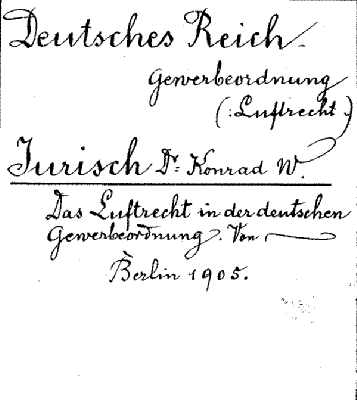 Deutsches Reich.
Gewerbeordnung
(: Luftrecht.)
Jurisch Dr. Konrad W.
Das Luftrecht in der deutschen
Gewerbeordnung. Von —
Berlin 1905.